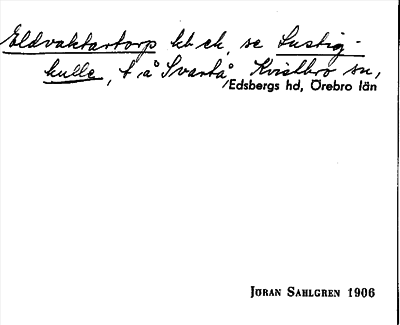 Eldvaktartorp hl ek, se Lustig-
kulle, t å Svartå, Kvistbro sn,
Edsbergs hd, Örebro län
JÖRAN SAHLGREN 1906